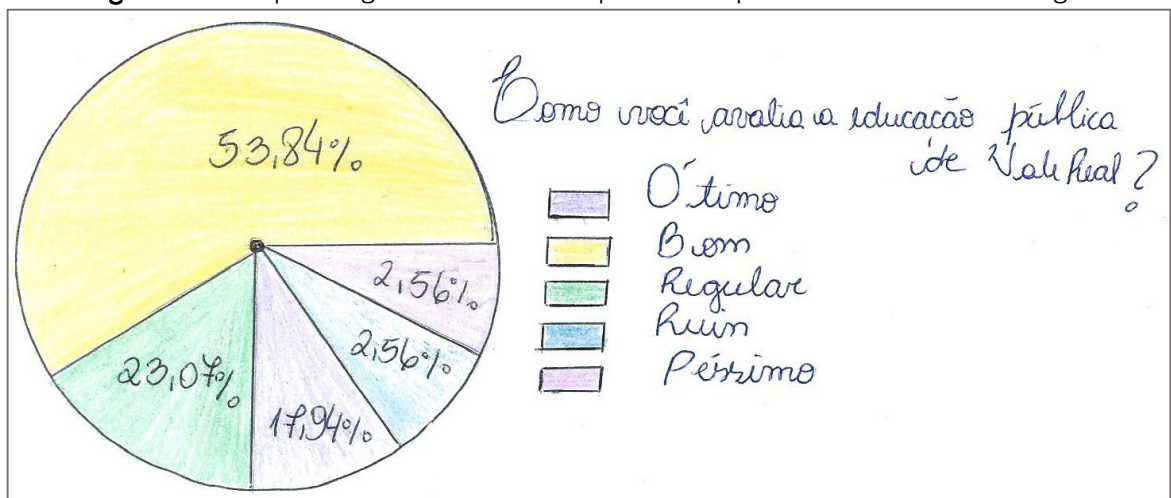 53,84%
2,56%
2,56%
17,94%
23,07%
Como você avalia a educação pública
de Vale Real?
Ótimo
Bom
Regular
Ruin
Péssimo